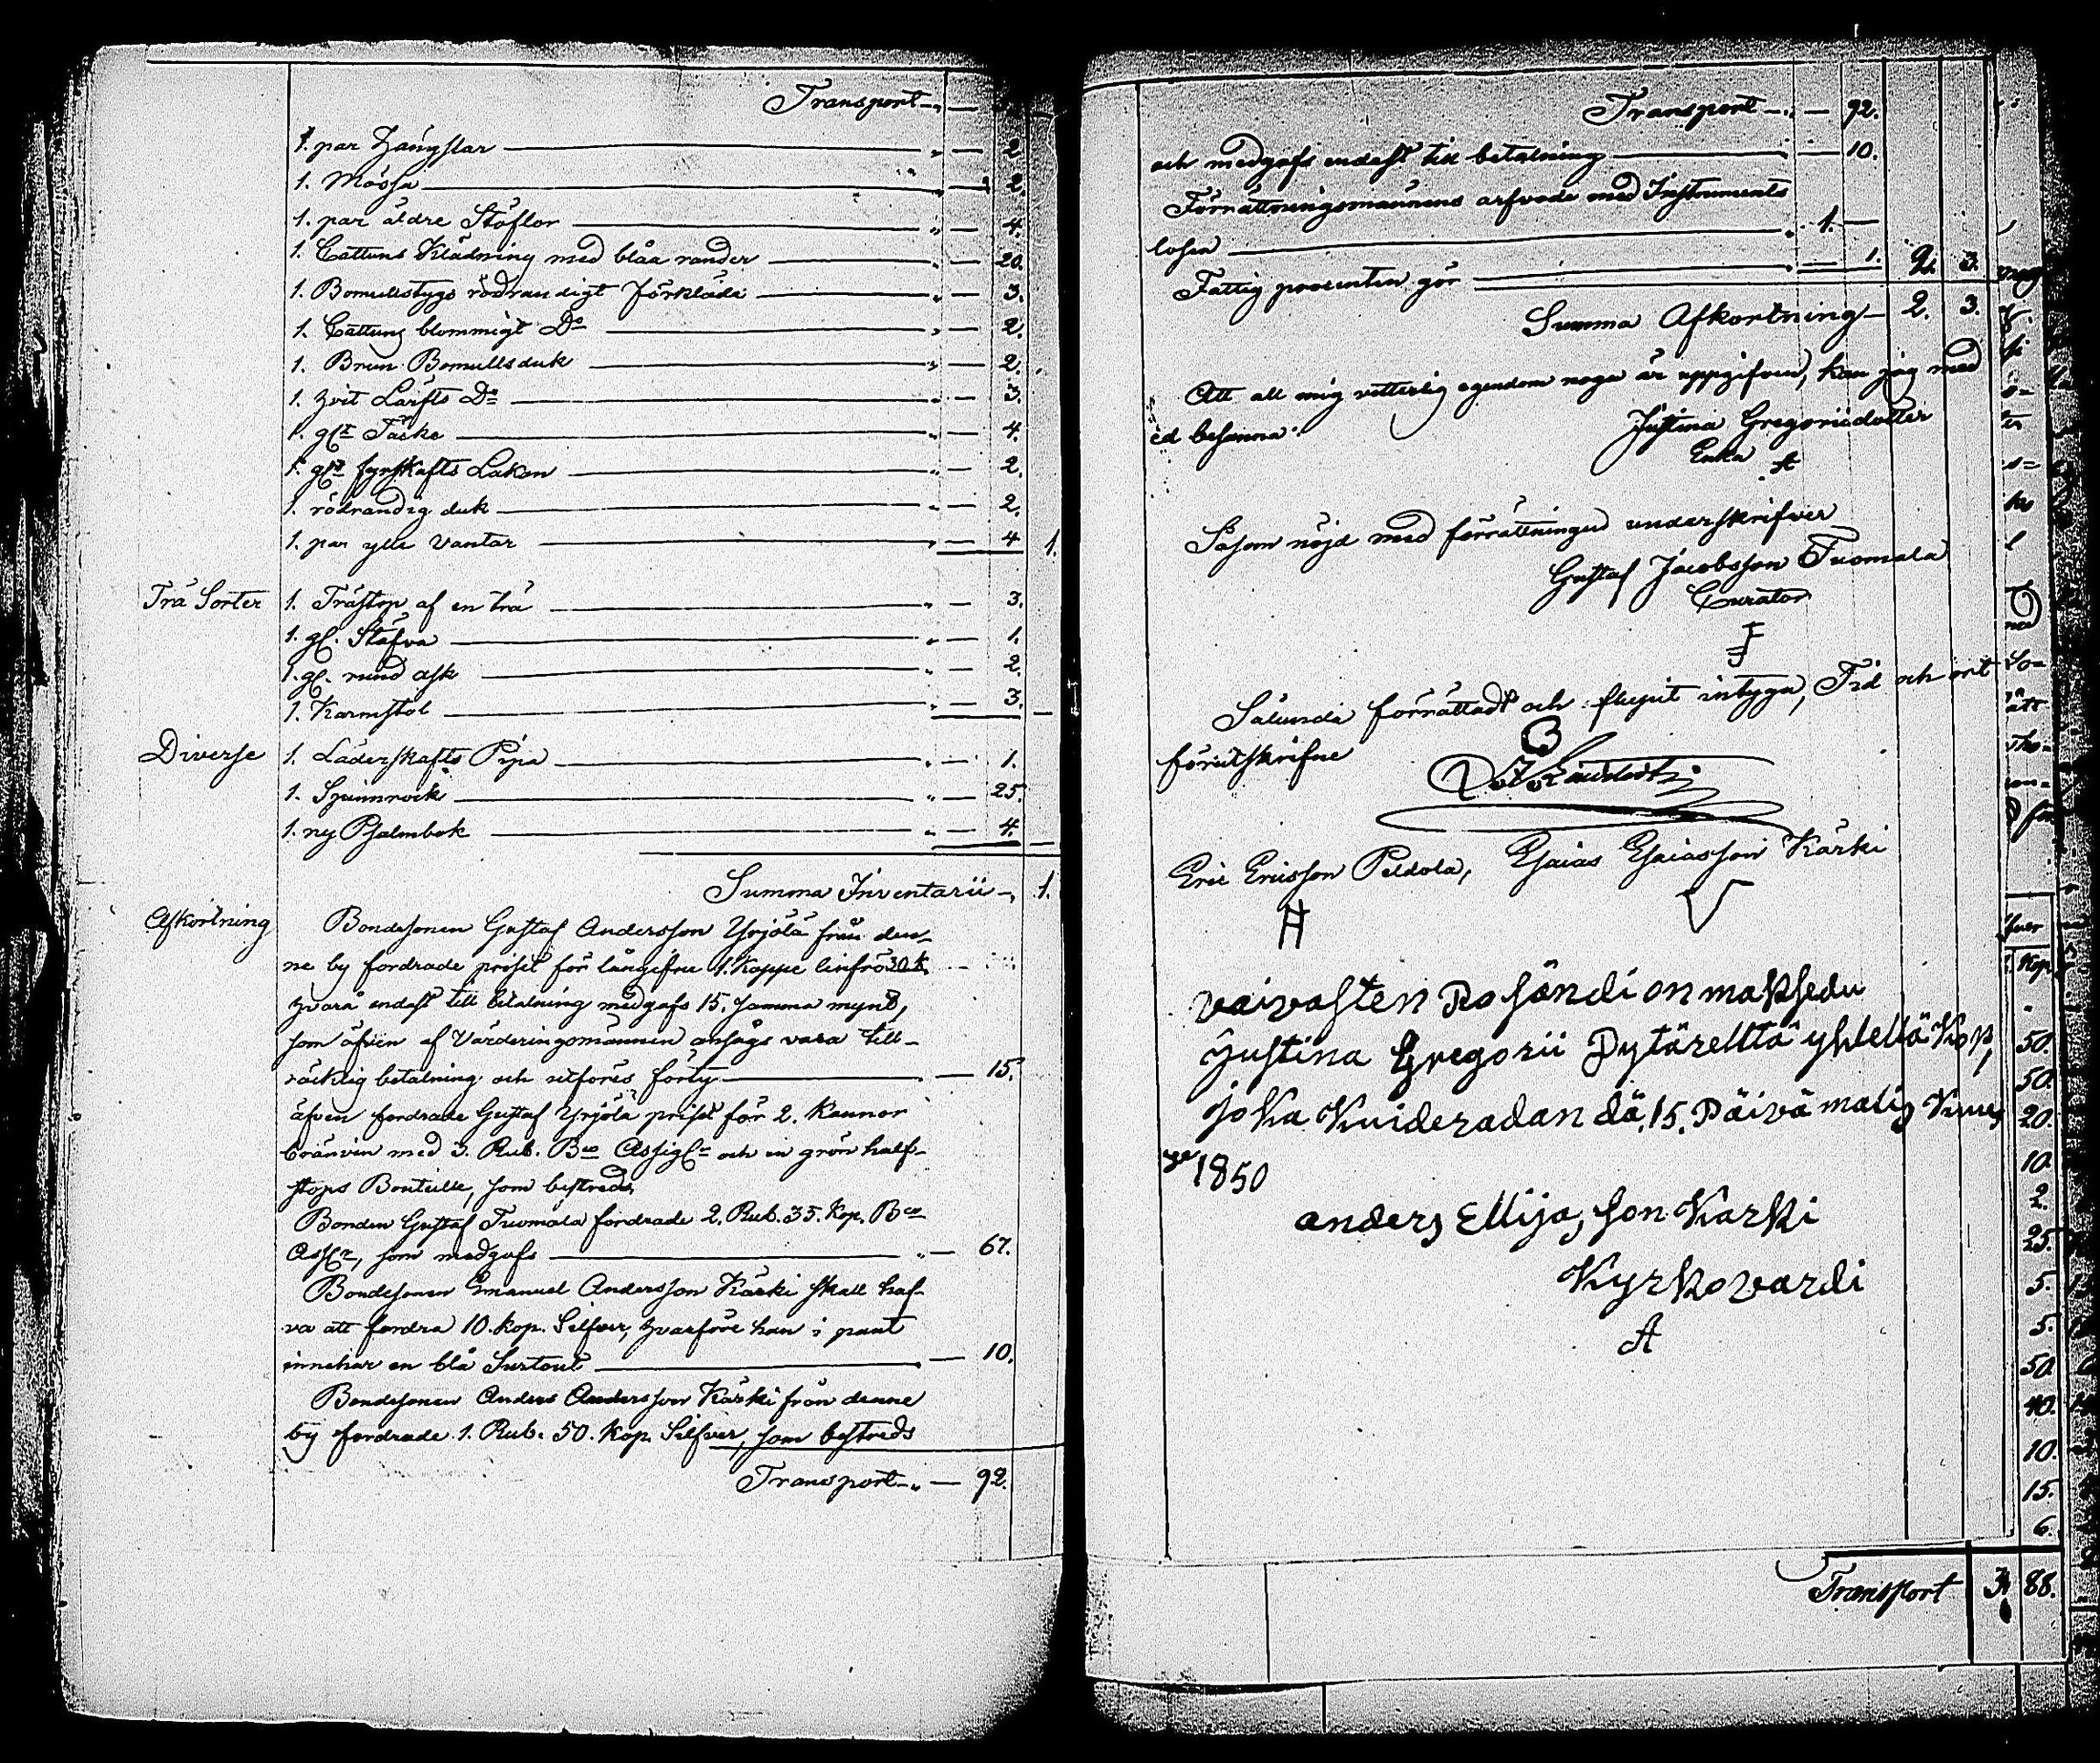 Transport — " —
1. par Hängslar — " — 2
1. Mössa — " — 2.
1. par äldre Stöflor — " — 4.
1. Cattuns Klädning med blåa ränder — " — 20.
1. Bomullstygs rödrandigt förkläde — " — 3.
1. Cattuns blommigt Do — " — 2.
1. Brun Bomullsduk — " — 2.
1. hvit Lärfts Do — " — 3.
1. glt Täcke — " — 4.
1. glt fyrskafts Lakan — " — 2.
1. rödrandig duk — " — 2.
1. par ylle Vantar — " — 4 1.
Trä Sorter 1. Trästop af en trä — " — 3.
1. gl. Stäfva — " — 1.
1. gl. rund ask — " — 2.
1. Karmstol — " — 3.
Diverse 1. Läderskafts Pipa — " — 1.
1. Spinnrock — " — 25.
1. ny Psalmbok — " — 4.
Summa Inventarii — " 1.
Afkortning Bondesonen Gustaf Andersson Yrjölä från den-
ne by fordrade priset för långifne 1. Kappe linfrö 30 k.
hvarå endast till betalning medgafs 15. samma mynt,
som äfven af Värderingsmännen ansågs vara till-
räcklig betalning och utföres förty — " — 15.
äfven fordrade Gustaf Yrjölä priset för 2. Kannor
bränvin med 3. Rub. Bco Assigr och en grön half-
stops Bouteille, som bestreds
Bonden Gustaf Tuomala fordrade 2. Rub. 35. Kop. Bco
Assr, som medgafs — " — 67.
Bondesonen Emanuel Andersson Kärki skall haf-
va att fordra 10. Kop. Silfver, hvarföre han i pant
innehar en blå Surtout — " — 10.
Bondesonen Anders Andersson Kärki från denne
by fordrade 1. Rub. 50. Kop. Silfver, som bestreds
Transport — " — 92.
Transport — " — 92.
och medgafs endast till betalning — " — 10.
Förrättningsmännens arfvode med Instruments
lösen — " 1. —
Fattig procenten gör — " — 1. 2. 3.
Summa Afkortning — 2. 3.
Att all mig vetterlig egendom noga är uppgifven, kan jag med
ed besanna.
Justina Gregoriidotter
Enka A
Såsom nöjd med förrättningen underskrifver
Gustaf Jacobsson Tuomala
Curator
Sålunda förrättadt och slutit intyga, Tid och ort
förutskrifne
Eric Ericsson Peldola, Esaias Esaiasson Kärki
H V
vaivasten Rosöndi on maksedu
Justina Gregorii Dytäreltä yhtellä Kop,
joka Kvideradan dä. 15. Päivä
1850
anders Ellija, son Karki
Kyrkovardi
A
Kop
50.
50.
20.
10
2.
25.
5.
5.
50.
40.
10.
15.
6.
Transport 3 88.